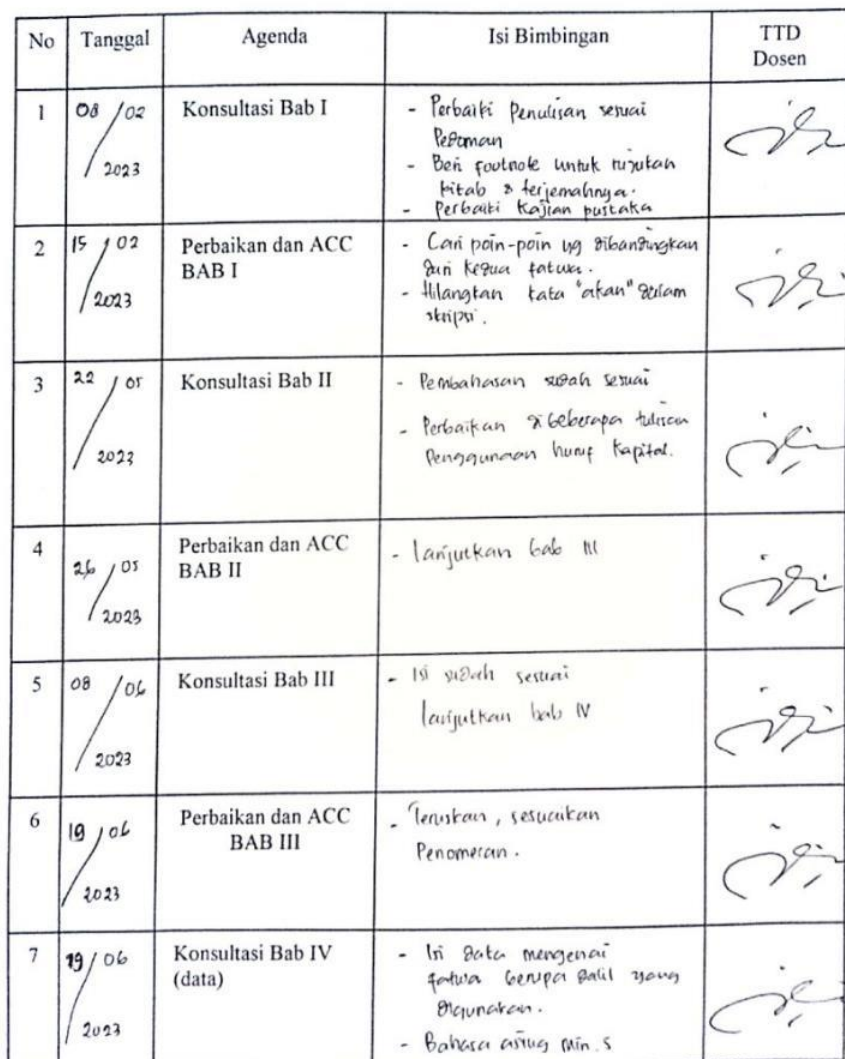 No Tanggal Agenda Isi Bimbingan TTD
Dosen
1 08/02 Konsultasi Bab I - Perbaiki Penulisan sesuai
Pedoman
2023 - Beri footnote untuk rujukan
kitab & terjemahnya.
- Perbaiki kajian pustaka
2 15/02 Perbaikan dan ACC - Cari poin-poin yg dibandingkan
BAB I dari kedua fatwa.
2023 - Hilangkan kata "akan" dalam
skripsi.
3 22/05 Konsultasi Bab II - Pembahasan sudah sesuai
- Perbaikan di beberapa tulisan
2023 Penggunaan huruf Kapital.
4 26/05 Perbaikan dan ACC - lanjutkan bab III
BAB II
2023
5 08/06 Konsultasi Bab III - Isi sudah sesuai
lanjutkan bab IV
2023
6 19/06 Perbaikan dan ACC - Teruskan, sesuaikan
BAB III Penomeran.
2023
7 19/06 Konsultasi Bab IV - Isi data mengenai
(data) fatwa berupa dalil yang
digunakan.
2023 - Bahasa asing min. 5